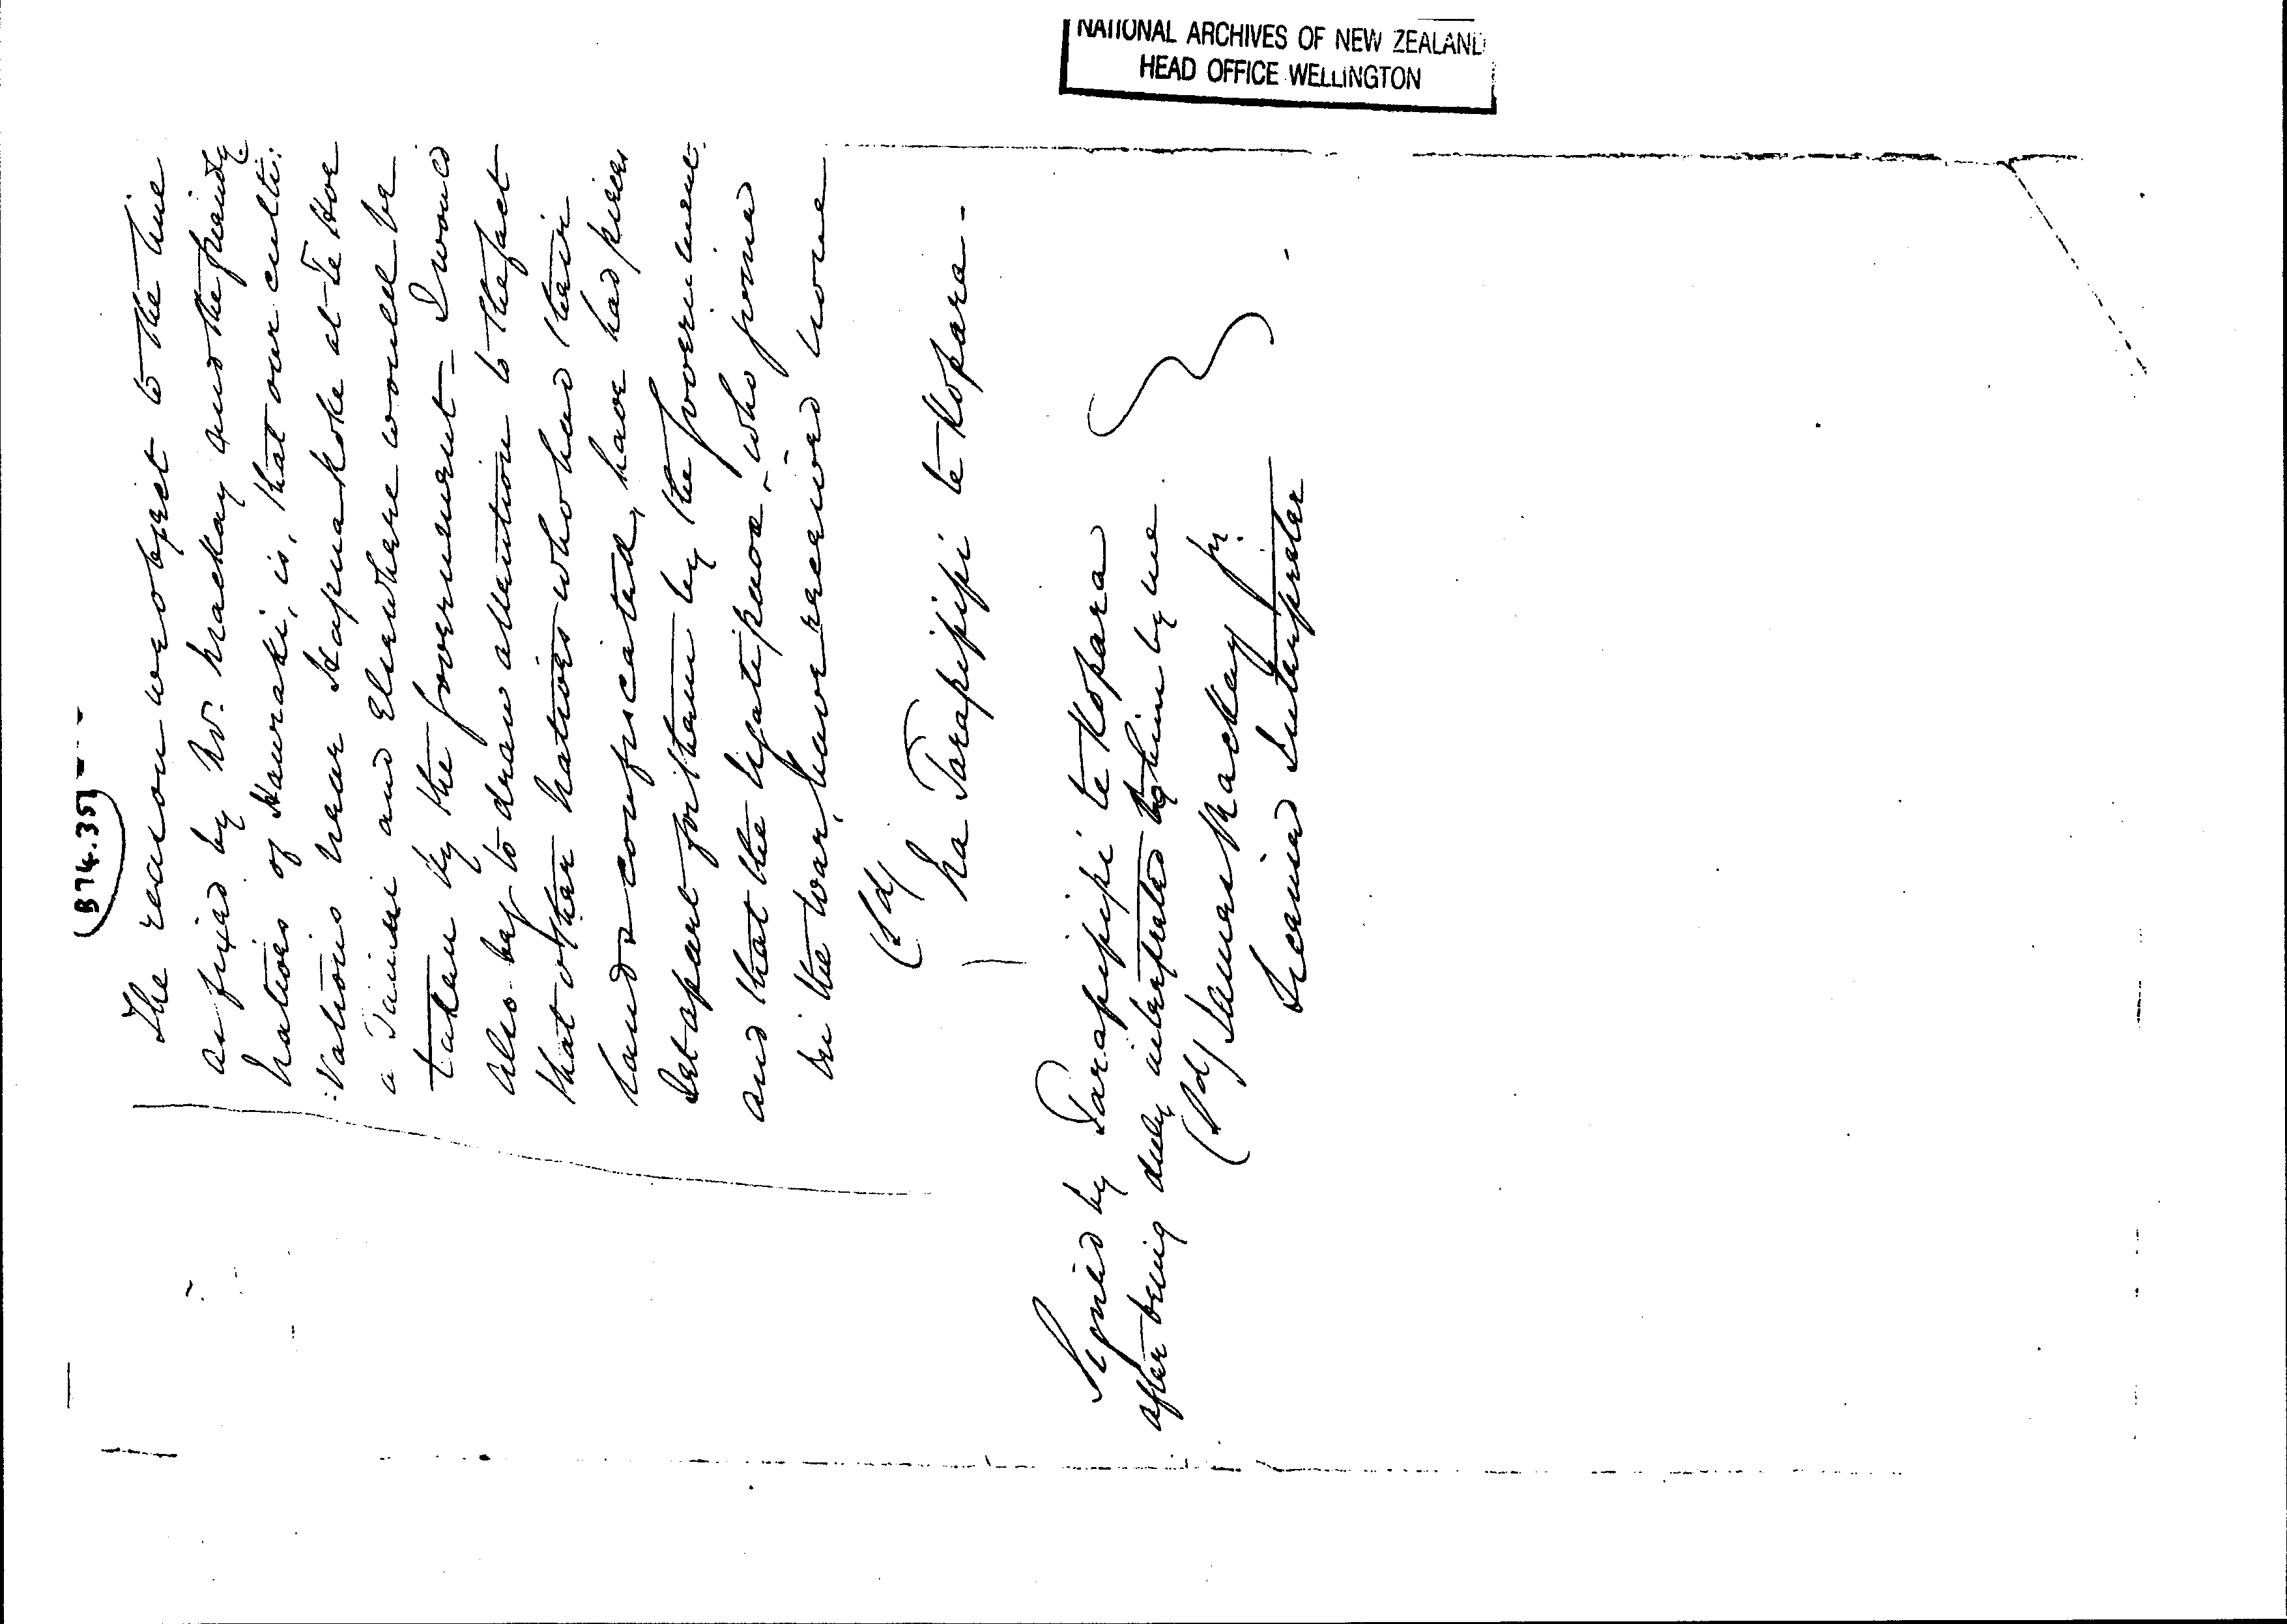 NATIONAL ARCHIVES OF NEW ZEALAND
HEAD OFFICE WELLINGTON
(B74.35)
The reason we object to the line
as fixed by Mr. Mackay and the friendly
natives of Hauraki, is, that our culti:
:vations near Hapuakohe at Te Hoe
o Tainui and Elsewhere would be
taken by the Government - I would
also beg to draw attention to the fact
that other natives who had their
lands confiscated, have had pieces
set apart for them by the Government.
and that the Ngatipaoa, who joined
in the war, have received none
(Sd/
Na Tarapipipi te Kopara -
Signed by Tarapipipi te Kopara
after being duly interpreted to him by me
(Sd/ James Mackay Jr.
Licensed Interpreter